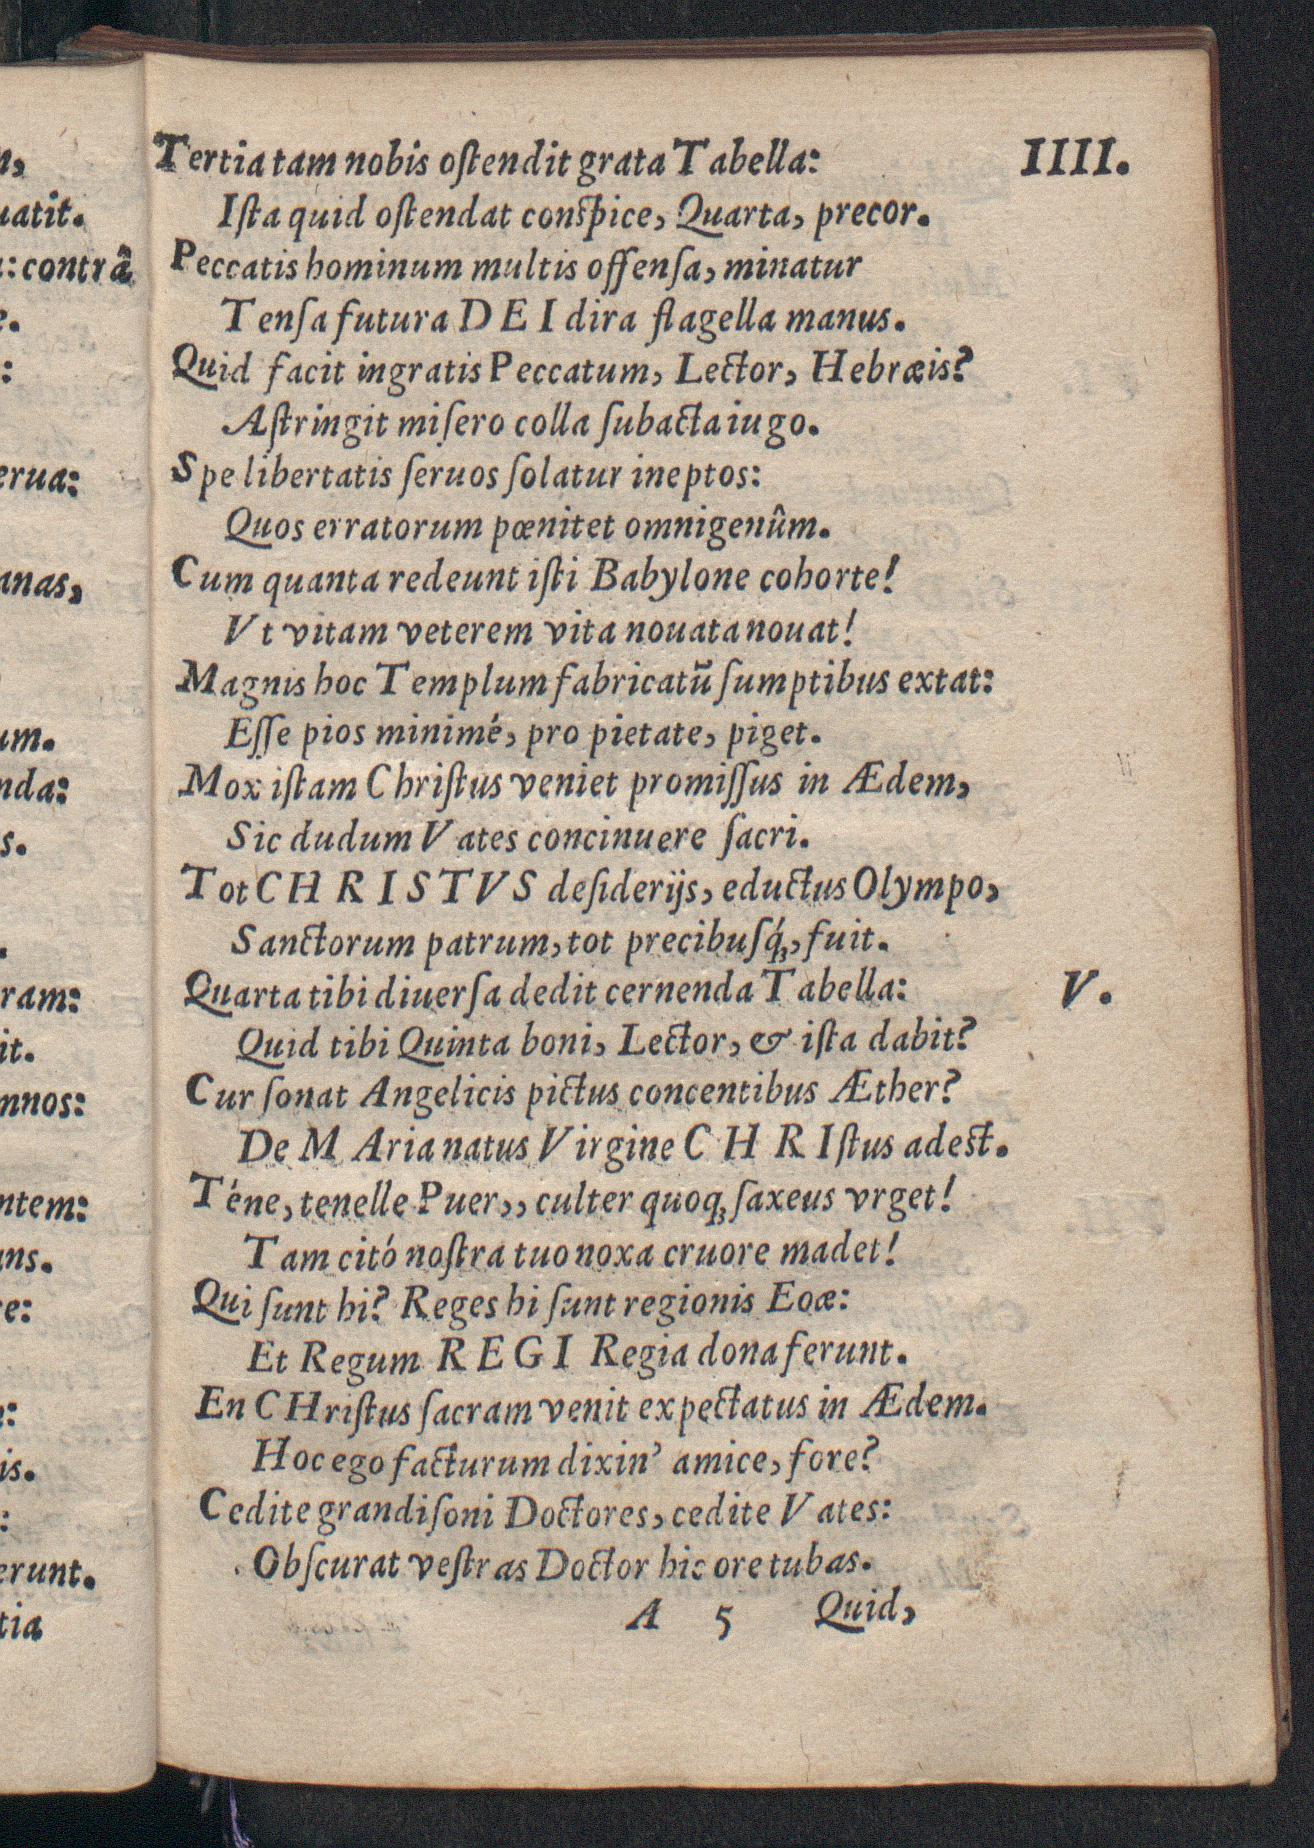 Tertia tam nobis oſtendit grata Tabella: IIII.
Iſta quid oſtendat conſpice, Quarta, precor.
Peccatis hominum multis offenſa, minatur
Tenſa futura DEI dira flagella manus.
Quid facit ingratis Peccatum, Lector, Hebræis?
Aſtringit miſero colla ſubacta iugo.
Spe libertatis ſeruos ſolatur ineptos:
Quos erratorum pœnitet omnigenûm.
Cum quanta redeunt iſti Babylone cohorte!
Vt vitam veterem vita nouata nouat!
Magnis hoc Templum fabricatũ ſumptibus extat:
Eſſe pios minimé, pro pietate, piget.
Mox iſtam Chriſtus veniet promiſſus in Ædem,
Sic dudum Vates concinuere ſacri.
Tot CHRISTVS deſiderijs, eductus Olympo,
Sanctorum patrum, tot precibuſq́;, fuit.
Quarta tibi diuerſa dedit cernenda Tabella: V.
Quid tibi Quinta boni, Lector, & iſta dabit?
Cur ſonat Angelicis pictus concentibus Æther?
De MAria natus Virgine CHRIſtus adest.
Téne, tenelle Puer,, culter quoq; ſaxeus vrget!
Tam citó noſtra tuo noxa cruore madet!
Qui ſunt hi? Reges hi ſunt regionis Eoæ:
Et Regum REGI Regia dona ferunt.
En CHriſtus ſacram venit expectatus in Ædem.
Hoc ego facturum dixin' amice, fore?
Cedite grandiſoni Doctores, cedite Vates:
Obſcurat veſtras Doctor hic ore tubas.
A 5 Quid,
uatit.
contrâ
erua:
anas,
um.
nda:
ram:
it.
mnos:
ntem:
ns.
re:
is.
erunt.
tia